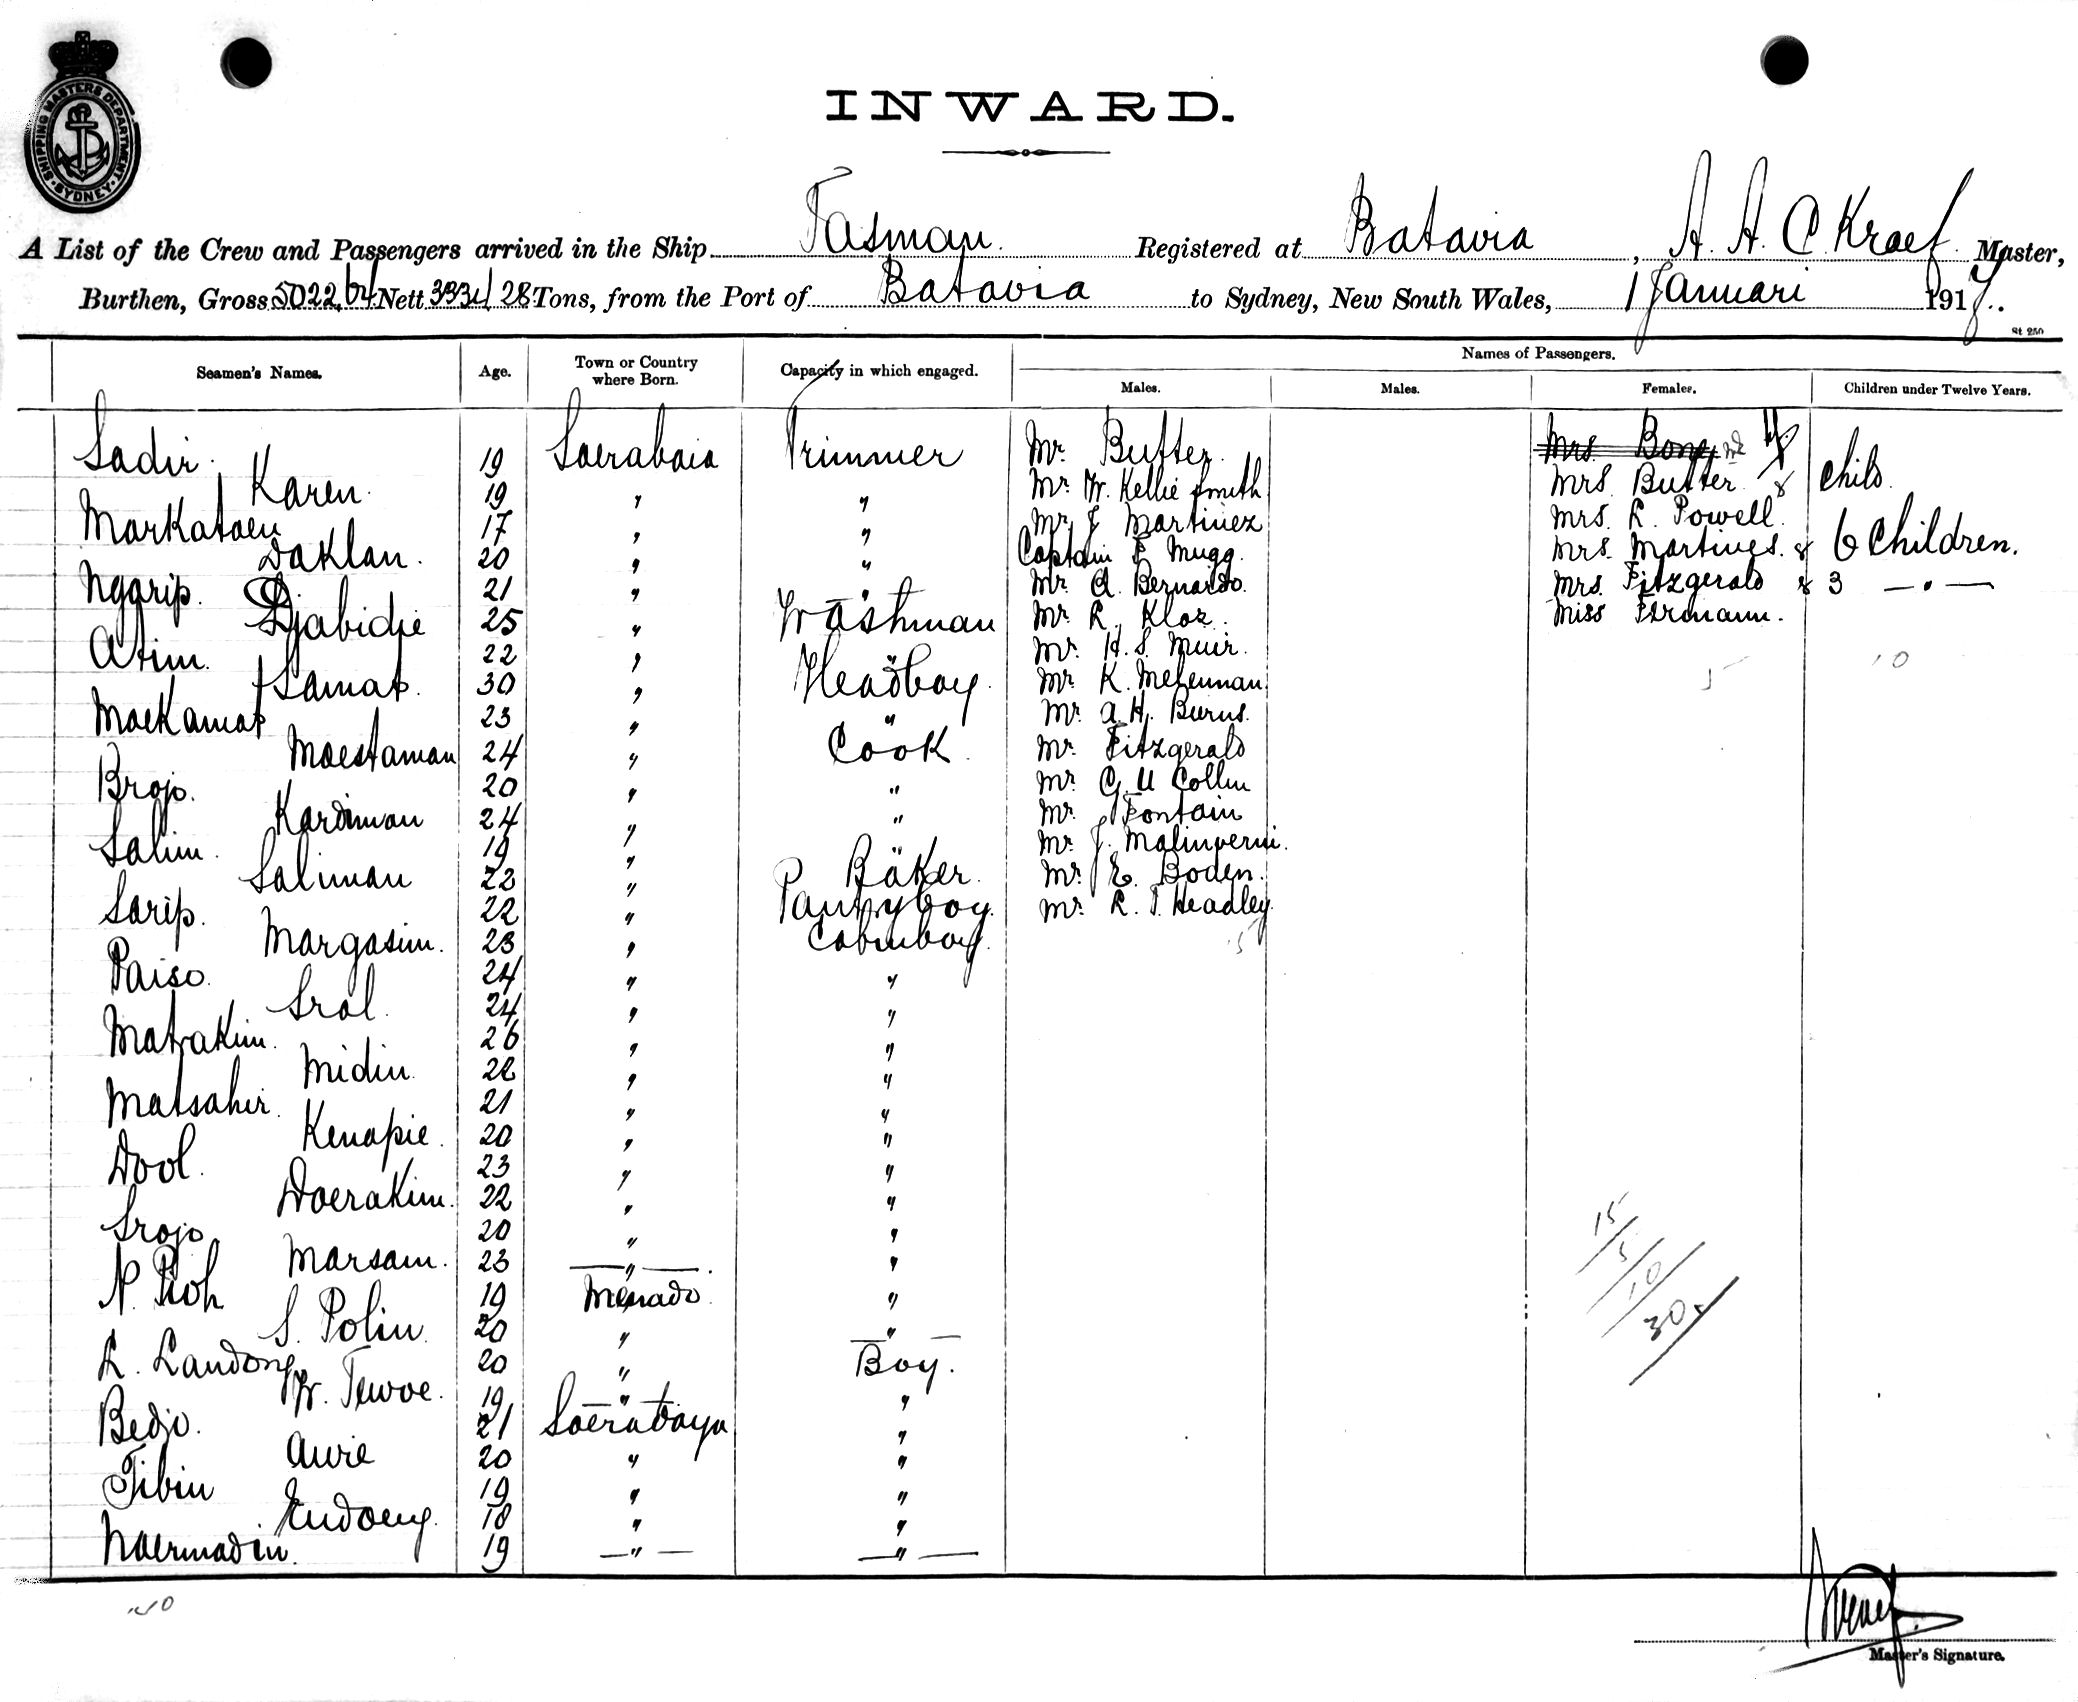 SHIPPING MASTERS DEPARTMENT
SYDNEY
INWARD.
A List of the Crew and Passengers arrived in the Ship Tasman. Registered at Batavia, A. A. C. Kraef. Master,
Burthen, Gross 5022,64 Nett 3334,28 Tons, from the Port of Batavia to Sydney, New South Wales, 1 Januari 1917.
St 250
Names of Passengers.
Seamen's Names. Age. Town or Country where Born. Capacity in which engaged. Males. Males. Females. Children under Twelve Years.
Sadir. 19 Soerabaia Trimmer Mr. Butter. Mrs. Bong
Karen. 19 " " Mr. W. Kellie Smith Mrs. Butter & child.
Markataen 17 " " Mr. J. Martinez Mrs. R. Powell.
Daklan. 20 " " Captain F. Mugg. Mrs. Martines. & 6 Children.
Ngarip. 21 " " Mr. A. Bernardo. Mrs. Fitzgerald & 3 — " —
Djabidje 25 " Washman Mr. R. Kloz. Miss Fermann.
Atim. 22 " " Mr. H. S. Muir. 5 10
Samat. 30 " Headboy. Mr. K. McLennan
Moekamat 23 " " Mr. A. H. Burns.
Moestaman 24 " Cook. Mr. Fitzgerald
Brojo. 20 " " Mr. C. U Collin
Kardiman 24 " " Mr. Fontain
Salim. 19 " " Mr. J. Malinverni.
Saliman 22 " Baker. Mr. E. Boden.
Sarip. 22 " Pantryboy. Mr. R. T. Headley.
Margasim. 23 " Cabinboy. 15
Paiso. 24 " "
Srol. 24 " "
Matrakim. 26 " "
Midin 22 " "
Matsahir. 21 " "
Kenapie. 20 " "
Dool. 23 " "
Doerakim. 22 " "
Srojo 20 " "
Marsam. 23 — " — "
N. Roh 19 Menado. "
S. Polin. 20 " — " —
L. Landong 20 " Boy.
W. Tewoe. 19 " "
Bedjo. 21 Soerabaya "
Awie 20 " "
Tibin 19 " "
Endoeng. 18 " "
Noermadin. 19 — " — — " —
15
5
10
30
Master's Signature.